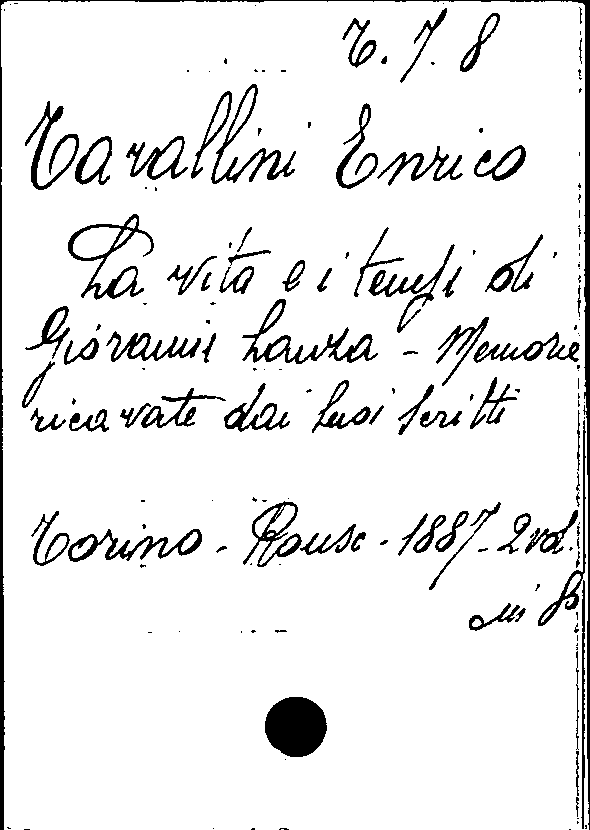 T. 7. 8
Tavallini Enrico
La vita e i tempi di
Giovanni Lanza - Memorie
ricavate dai suoi scritti
Torino - Roux - 1887 - 2 vol.
in 8º